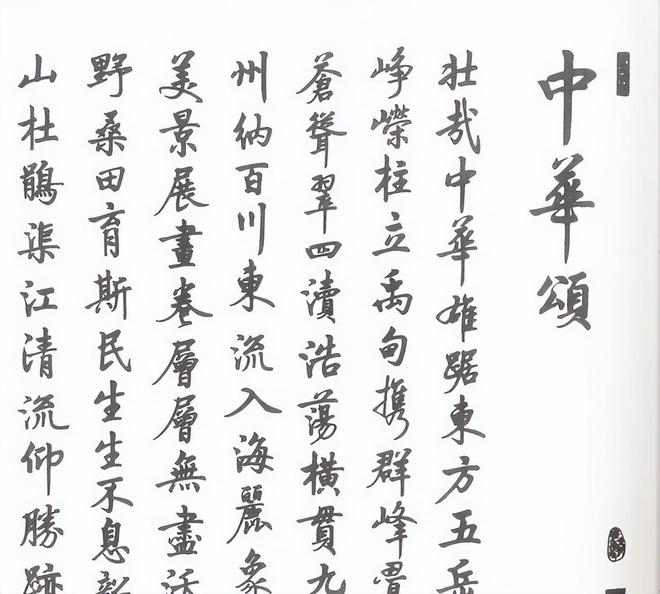 中華頌
壯哉中華雄踞東方五岳
崢嶸柱立禹甸攜群峰
蒼聳翠四瀆浩蕩橫貫九
州納百川東流入海麗象
美景展畫卷層層無盡沃
野桑田育斯民生生不息新
山杜鵑渠江清流仰勝跡